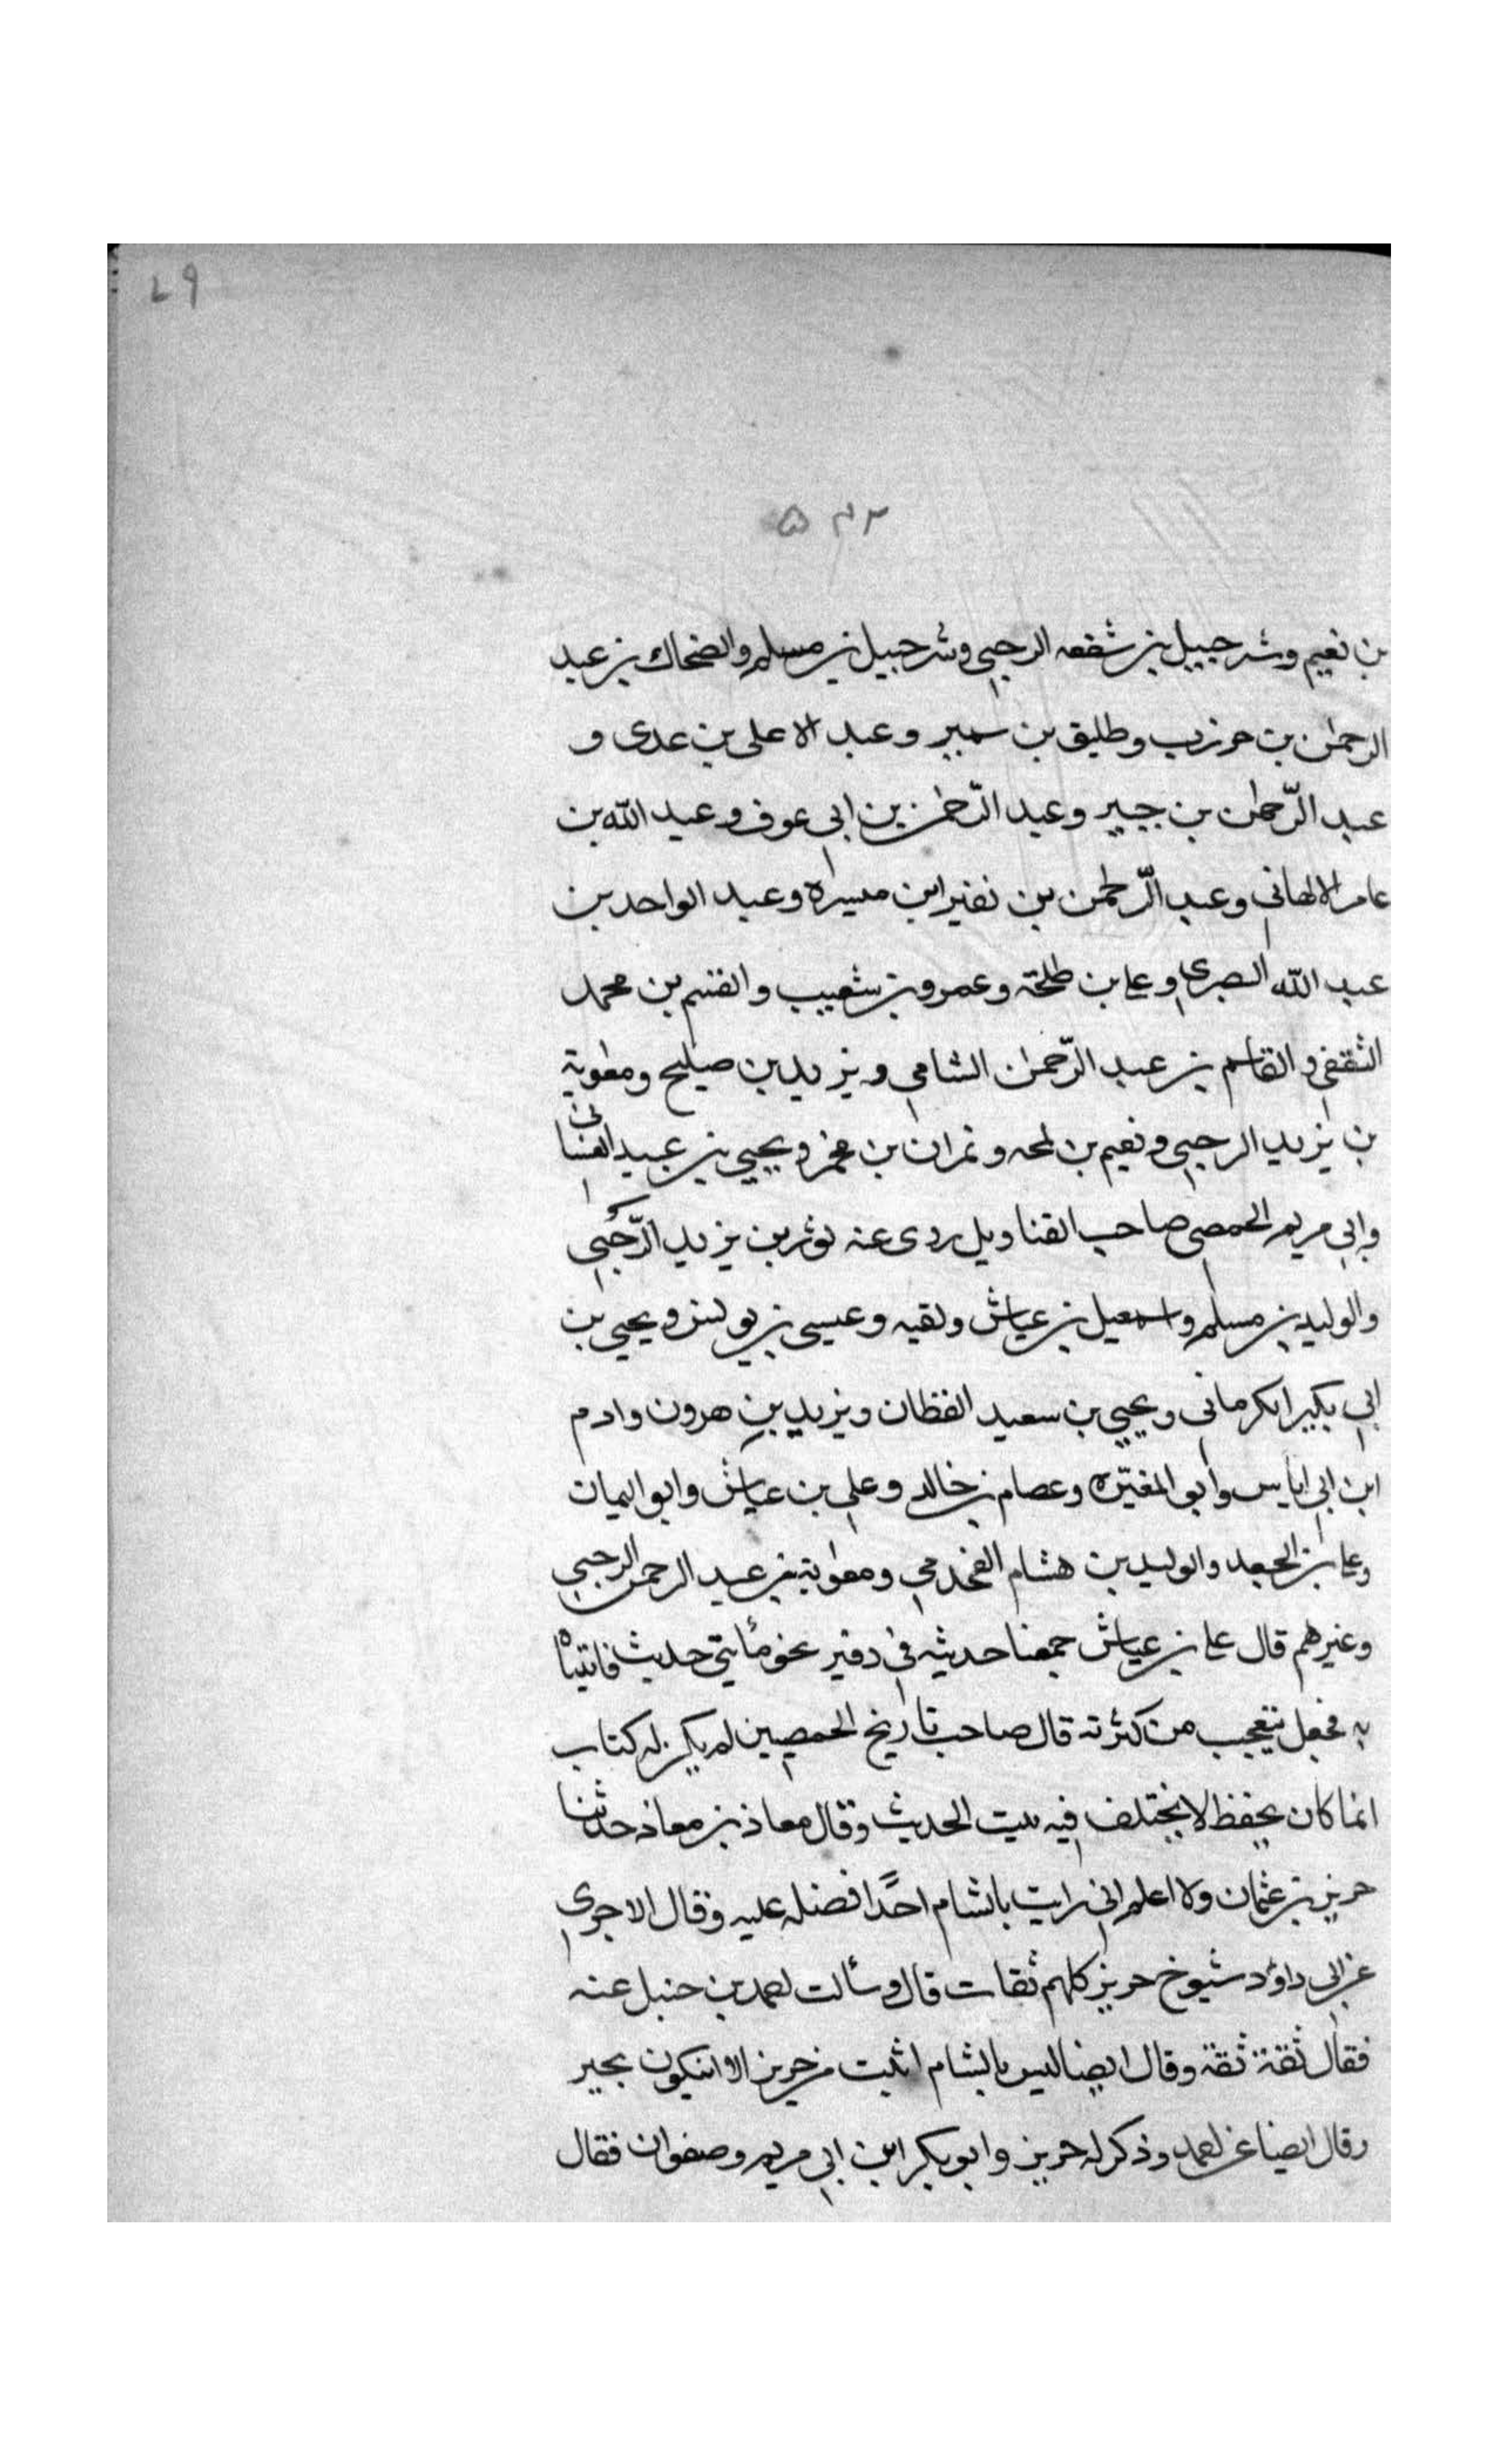 ٤٩
٥٣٢
بن نعيم وشرحبيل بن شفعه الرحبي وشرحبيل بن مسلم والضحاك بن عبد
الرحمٰن بن حوزب وطليق بن سمير وعبد الاعلى بن عدى و
عبد الرّحمٰن بن جبير وعبد الرّحمٰن بن ابي عوف وعبد الله بن
عامر الالهاني وعبد الرّحمٰن بن نفير ابن ميسرة وعبد الواحد بن
عبد الله البصرى وعلى بن طلحة وعمرو بن شعيب والقسم بن محمد
الثقفي والقاسم بن عبد الرّحمٰن الشامي ويزيد بن صليح ومعٰوية
بن يزيد الرحبي ونعيم بن لمحه ونمران بن مخمر ويحيى بن عبيد الغسانى
وابي مريم الحمصي صاحب القناديل روى عنه ثور بن يزيد الرّحبي
والوليد بن مسلم واسمعيل بن عياش وبقيه وعيسى بن يونس ويحيى بن
ابي بكير الكرماني ويحيى بن سعيد القطان ويزيد بن هرون وادم
ابن ابي اياس وابو المغيّره وعصام بن خالد وعلي بن عياش وابو اليمان
وعلى بن الجعد والوليد بن هشام القحذمي ومعٰوية بن عبد الرحمن الرحبي
وغيرهم قال على بن عياش جمعنا حديثه في دفتر نحو مأيتي حديث فاتيناه
به فجعل يتعجب من كثرته قال صاحب تاريخ الحمصيين لم يكن له كتاب
انما كان يحفظ لا يختلف فيه ثبت الحديث وقال معاذ بن معاذ حدثنا
حريز بن عثمان ولا اعلم اني رايت بالشام احدًا افضله عليه وقال الاجرى
عن ابي داوٗد شيوخ حريز كلهم ثقات قال وسألت احمد بن حنبل عنه
فقال ثقة ثقة وقال ايضا ليس بالشام اثبت من حريز الا ان يكون بحير
وقال ايضا عن احمد وذكر له حريز وابو بكر ابن ابي مريم وصفوان فقال